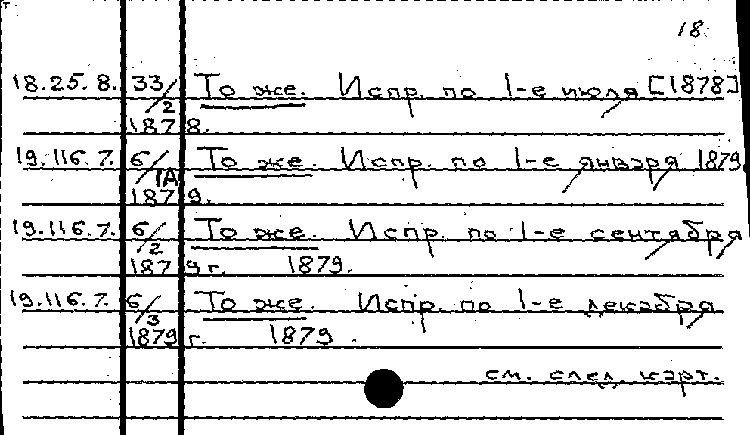 18.
18.25.8. 33/2 То же. Испр. по 1-е июля [1878]
1878.
19.116.7. 6/1А То же. Испр. по 1-е января 1879
1879.
19.116.7. 6/2 То же. Испр. по 1-е сентября
1879 г. 1879.
19.116.7. 6/3 То же. Испр. по 1-е декабря
1879 г. 1879.
см. след. карт.